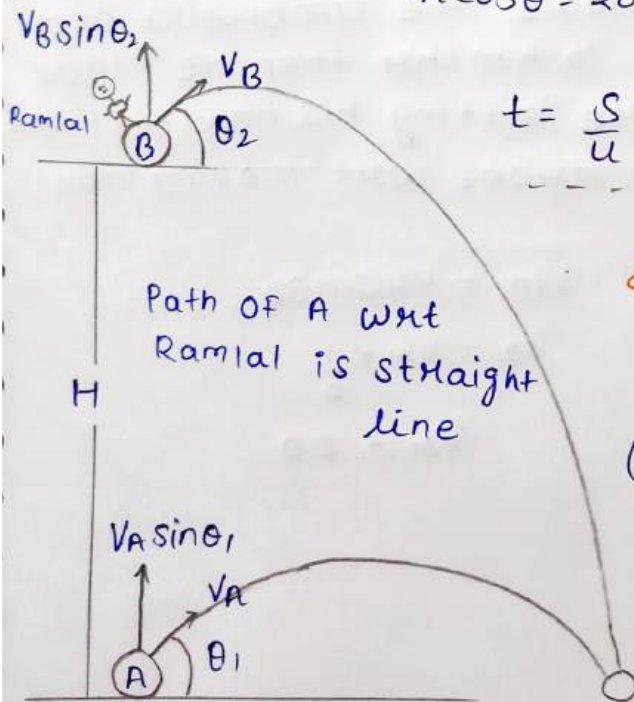 VB sinθ2
VB
Ramlal
B
θ2
t = S
u
Path of A wrt
Ramlal is straight
line
H
VA sinθ1
VA
θ1
A